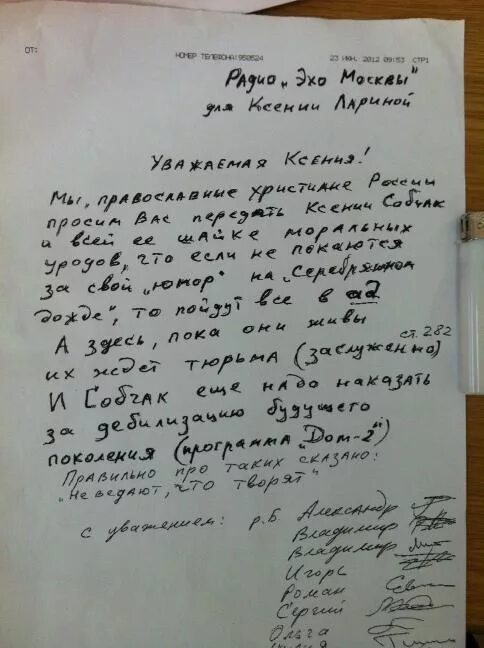 ОТ: НОМЕР ТЕЛЕФОНА:950524 23 ИЮН. 2012 09:53 СТР1
Радио „Эхо Москвы"
для Ксении Лариной
Уважаемая Ксения!
Мы, православные христиане России
просим Вас передать Ксении Собчак
и всей ее шайке моральных
уродов, что если не покаются
за свой „юмор" на „Серебряном
дожде", то пойдут все в ад
А здесь, пока они живы ст. 282
их ждет тюрьма (заслуженно)
И Собчак еще надо наказать
за дебилизацию будущего
поколения (программа „Дом-2")
Правильно про таких сказано:
„Не ведают, что творят"
с уважением: р.Б. Александр
Владимир
Владимир
Игорь
Роман
Сергий
Ольга